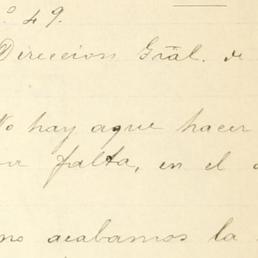 º 49.
Direccion Gral. de
No hay aque hacer
falta, en el
no acabamos la